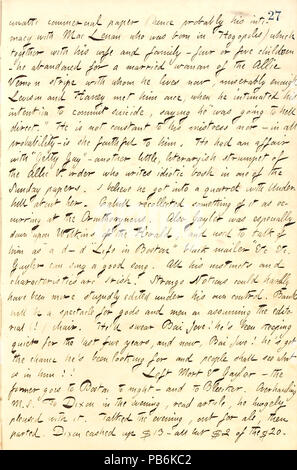 27
cuvatté commercial paper (hence probably his inti-
macy with Mac Lenan who was born in Hogopolis) which
together with his wife and family - four or five children
he abandoned for a married woman of the Allie
Vernon stripe with whom he lives now, miserably enough.
Leveson and Haney met him once, when he intimated his
intention to commit suicide, saying he "was going to hell
direct." He is not constant to his mistress now - in all
probability - is she faithful to him. He had an affair
with "Getty Gay" - another little, literaryish strumpet of
the Allie V order who writes idiotic bosh in one of the
Sunday papers. I believe he got into a quarrel with Under-
hill about her. Cahill recollected something of its oc-
curring at the Ornithorhyncus. Alas Gayler was especially
down upon Watkins of the Herald, and used to talk of
him as "a d—d 'Life in Boston' black mailer" &c &c.
Gayler can sing a good song. All his instincts and
characteristics are Irish. Strange Notions could hardly
have been more stupidly edited under his own control. Bank
will be a spectacle for gods and men assuming the edito-
rial (!) chair. He'll swear Bai Jove! he's been keeping
quiet for the last five years, and now, Bai Jove! he's got
the chance he's been looking for and people shall see what
is in him!! Left Mort & Gayler - the
former goes to Boston to night - and to Bleecker.
M.S. To Dixon in the evening, read article, he hugely
pleased with it. Talked the evening, out for ale, then
parted. Dixon cashed up $13 - all but $2 of the $20.